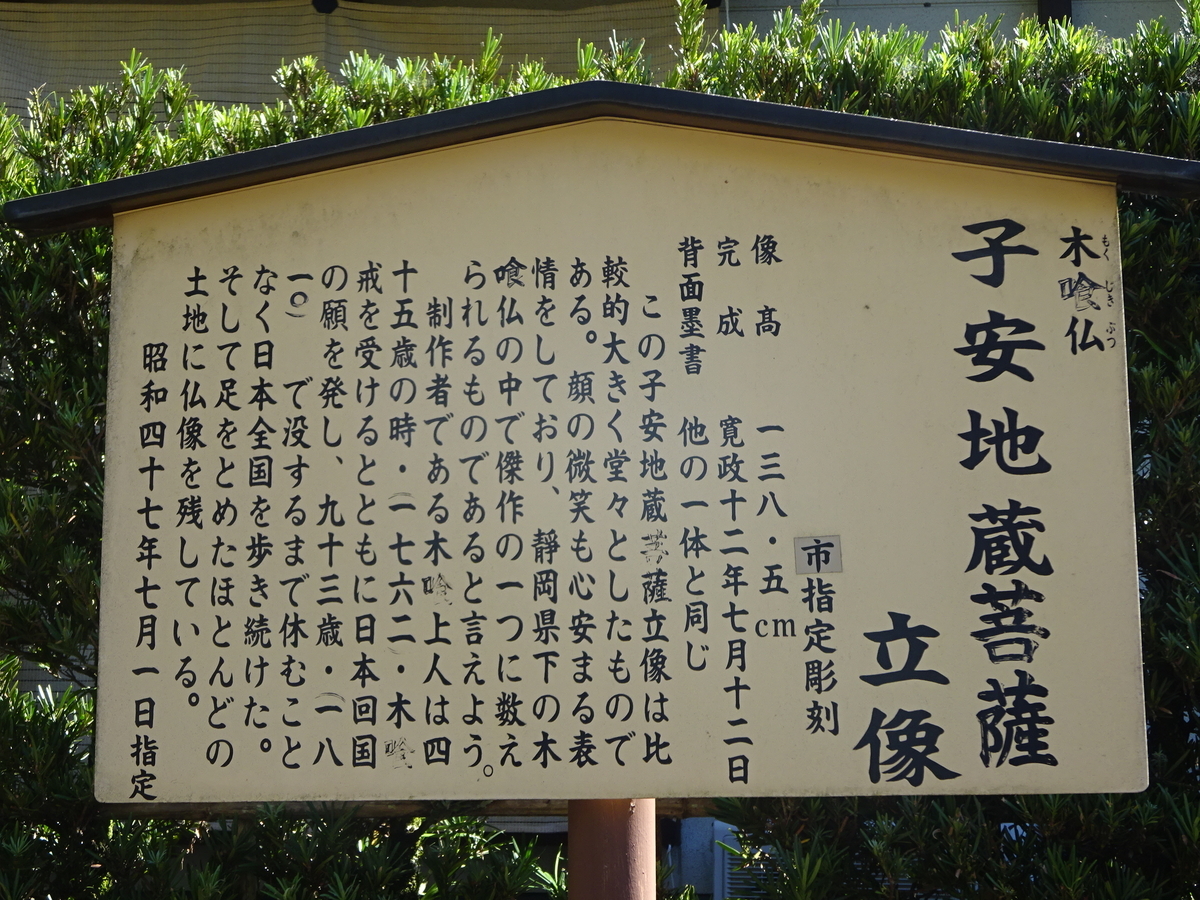 木喰仏
もく じき ぶつ
子安地蔵菩薩
立像
市指定彫刻
像高 一三八・五cm
完成 寛政十二年七月十二日
背面墨書 他の一体と同じ
この子安地蔵菩薩立像は比
較的大きく堂々としたもので
ある。顔の微笑も心安まる表
情をしており、静岡県下の木
喰仏の中で傑作の一つに数え
られるものであると言えよう。
制作者である木喰上人は四
十五歳の時・(一七六二・木喰
戒を受けるとともに日本回国
の願を発し、九十三歳・(一八
一〇)で没するまで休むこと
なく日本全国を歩き続けた。
そして足をとめたほとんどの
土地に仏像を残している。
昭和四十七年七月一日指定